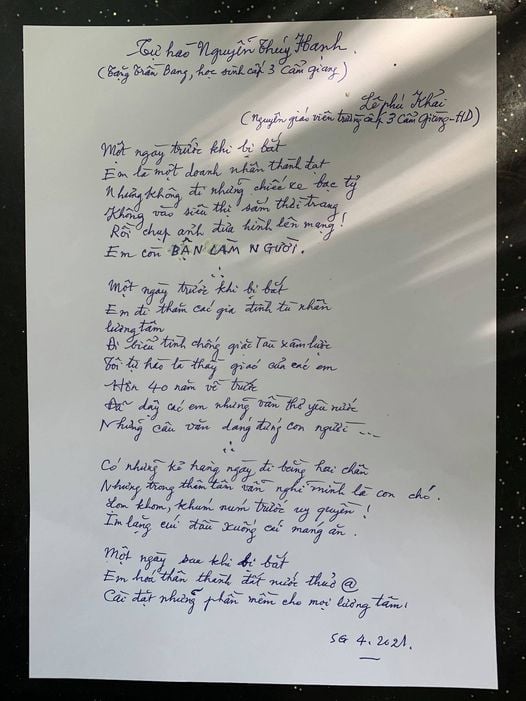 Tự hào Nguyễn Thúy Hạnh.
(Tặng Trần Bang, học sinh cấp 3 Cẩm giàng)
Lê phú Khải
(Nguyên giáo viên trường cấp 3 Cẩm Giàng-HD)
Một ngày trước khi bị bắt
Em là một doanh nhân thành đạt
Nhưng không đi những chiếc xe bạc tỷ
Không vào siêu thị sắm thời trang
Rồi chụp ảnh đưa hình lên mạng!
Em còn BẬN LÀM NGƯỜI.
Một ngày trước khi bị bắt
Em đi thăm các gia đình tù nhân
lương tâm
Đi biểu tình chống giặc Tàu xâm lược
Tôi tự hào là thầy giáo của các em
Hơn 40 năm về trước
Đã dạy các em những vần thơ yêu nước
Những câu văn dáng đứng con người ...
Có những kẻ hàng ngày đi bằng hai chân
Nhưng trong thâm tâm vẫn nghĩ mình là con chó.
Lom khom, khúm núm trước uy quyền!
Im lặng cúi đầu xuống cái máng ăn.
Một ngày sau khi bị bắt
Em hoá thân thành đất nước thuở @
Cài đặt những phần mềm cho mọi lương tâm!
SG 4.2021.